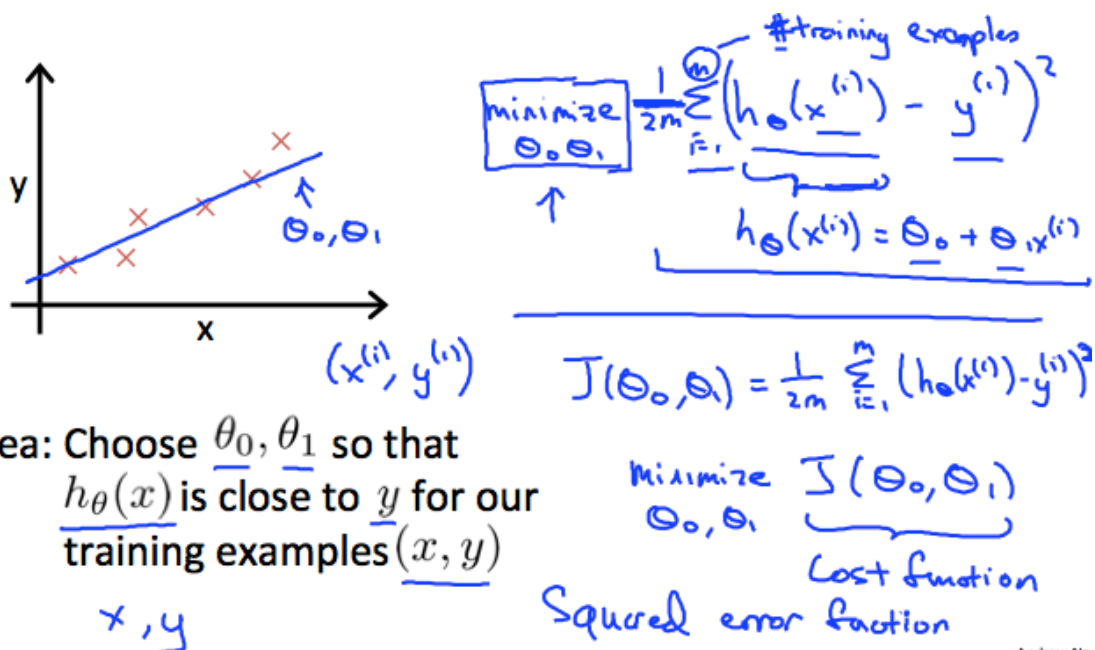 #training examples
minimize θ₀ θ₁ 1/2m Σ i=1 m (hθ(x⁽ⁱ⁾) - y⁽ⁱ⁾)²
hθ(x⁽ⁱ⁾) = θ₀ + θ₁x⁽ⁱ⁾
y
θ₀, θ₁
x
(x⁽ⁱ⁾, y⁽ⁱ⁾)
J(θ₀, θ₁) = 1/2m Σ i=1 m (hθ(x⁽ⁱ⁾) - y⁽ⁱ⁾)²
ea: Choose θ₀, θ₁ so that
hθ(x) is close to y for our
training examples (x, y)
x, y
minimize J(θ₀, θ₁)
θ₀, θ₁
Cost function
Squared error function